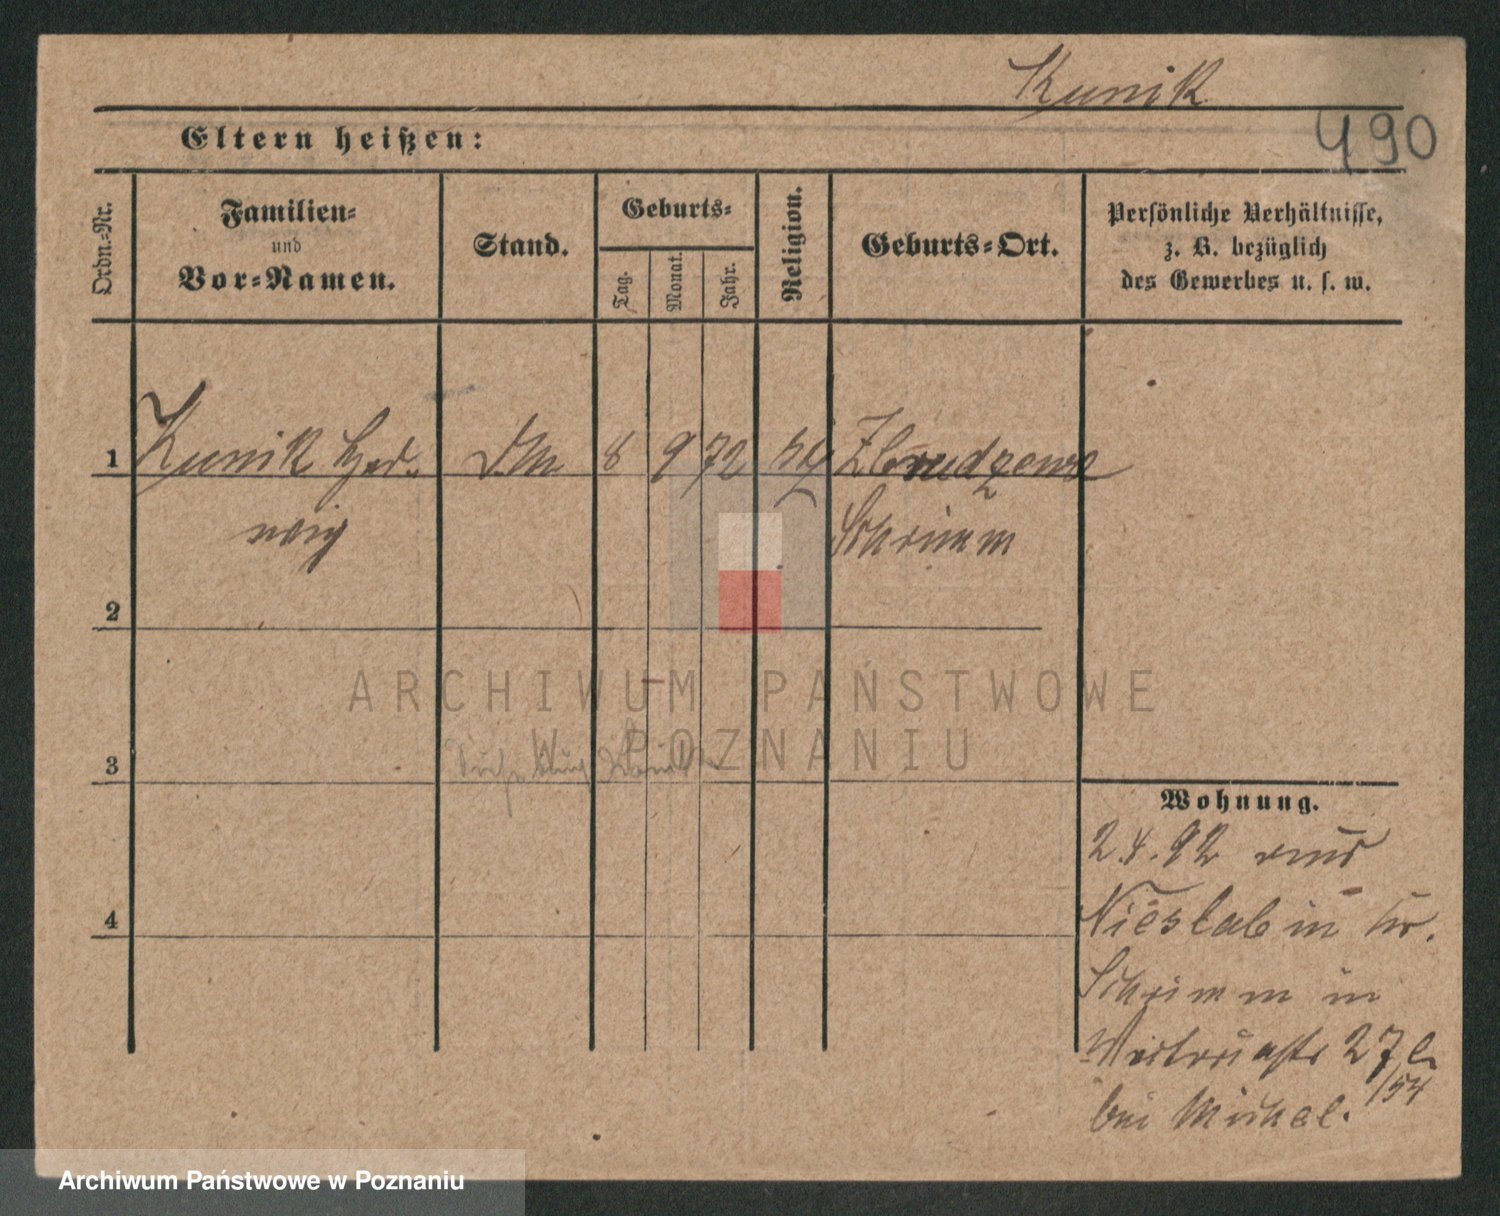 Kunik
490
Eltern heißen:
Ordn.-Nr.
Familien-
und
Vor-Namen.
Stand.
Geburts-
Tag.
Monat.
Jahr.
Religion.
Geburts-Ort.
Persönliche Verhältnisse,
z. B. bezüglich
des Gewerbes u. s. w.
1 Kunik Hed- 8 9 72 Zbrudzewo
wig Schrimm
2
ARCHIWUM PAŃSTWOWE
W POZNANIU
3
Wohnung.
2.4.92 aus
Nieslabin Kr.
4
Schrimm in
27
bei Michel. /54
Archiwum Państwowe w Poznaniu